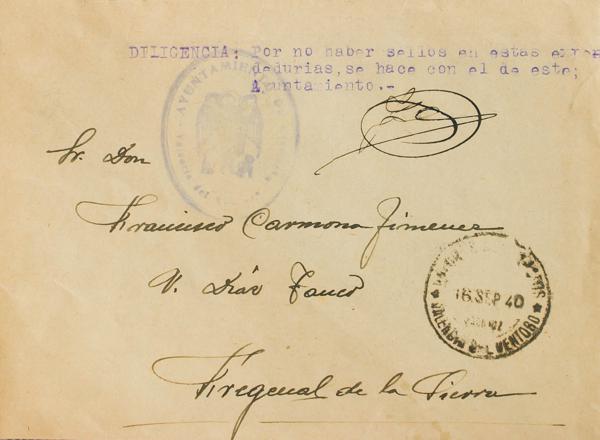 DILIGENCIA: Por no haber sellos en estas expen
dedurias, se hace con el de este;
Ayuntamiento.-
AYUNTAMIENTO DE
Sr. Don
Francisco Carmona Jimenez
V. Diáz Tanco
Fregenal de la Sierra
16 SEP 40
BADAJOZ
VALENCIA DEL VENTOSO